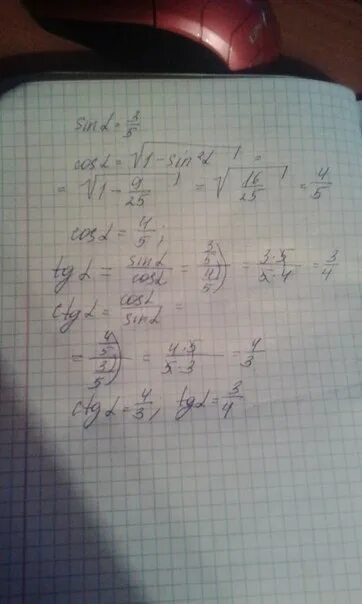 sinα = 3/5
cosα = √(1 - sin²α) =
= √(1 - 9/25) = √(16/25) = 4/5
cosα = 4/5;
tgα = sinα/cosα = (3/5)/(4/5) = 3·5/5·4 = 3/4
ctgα = cosα/sinα =
= (4/5)/(3/5) = 4·5/5·3 = 4/3
ctgα = 4/3; tgα = 3/4